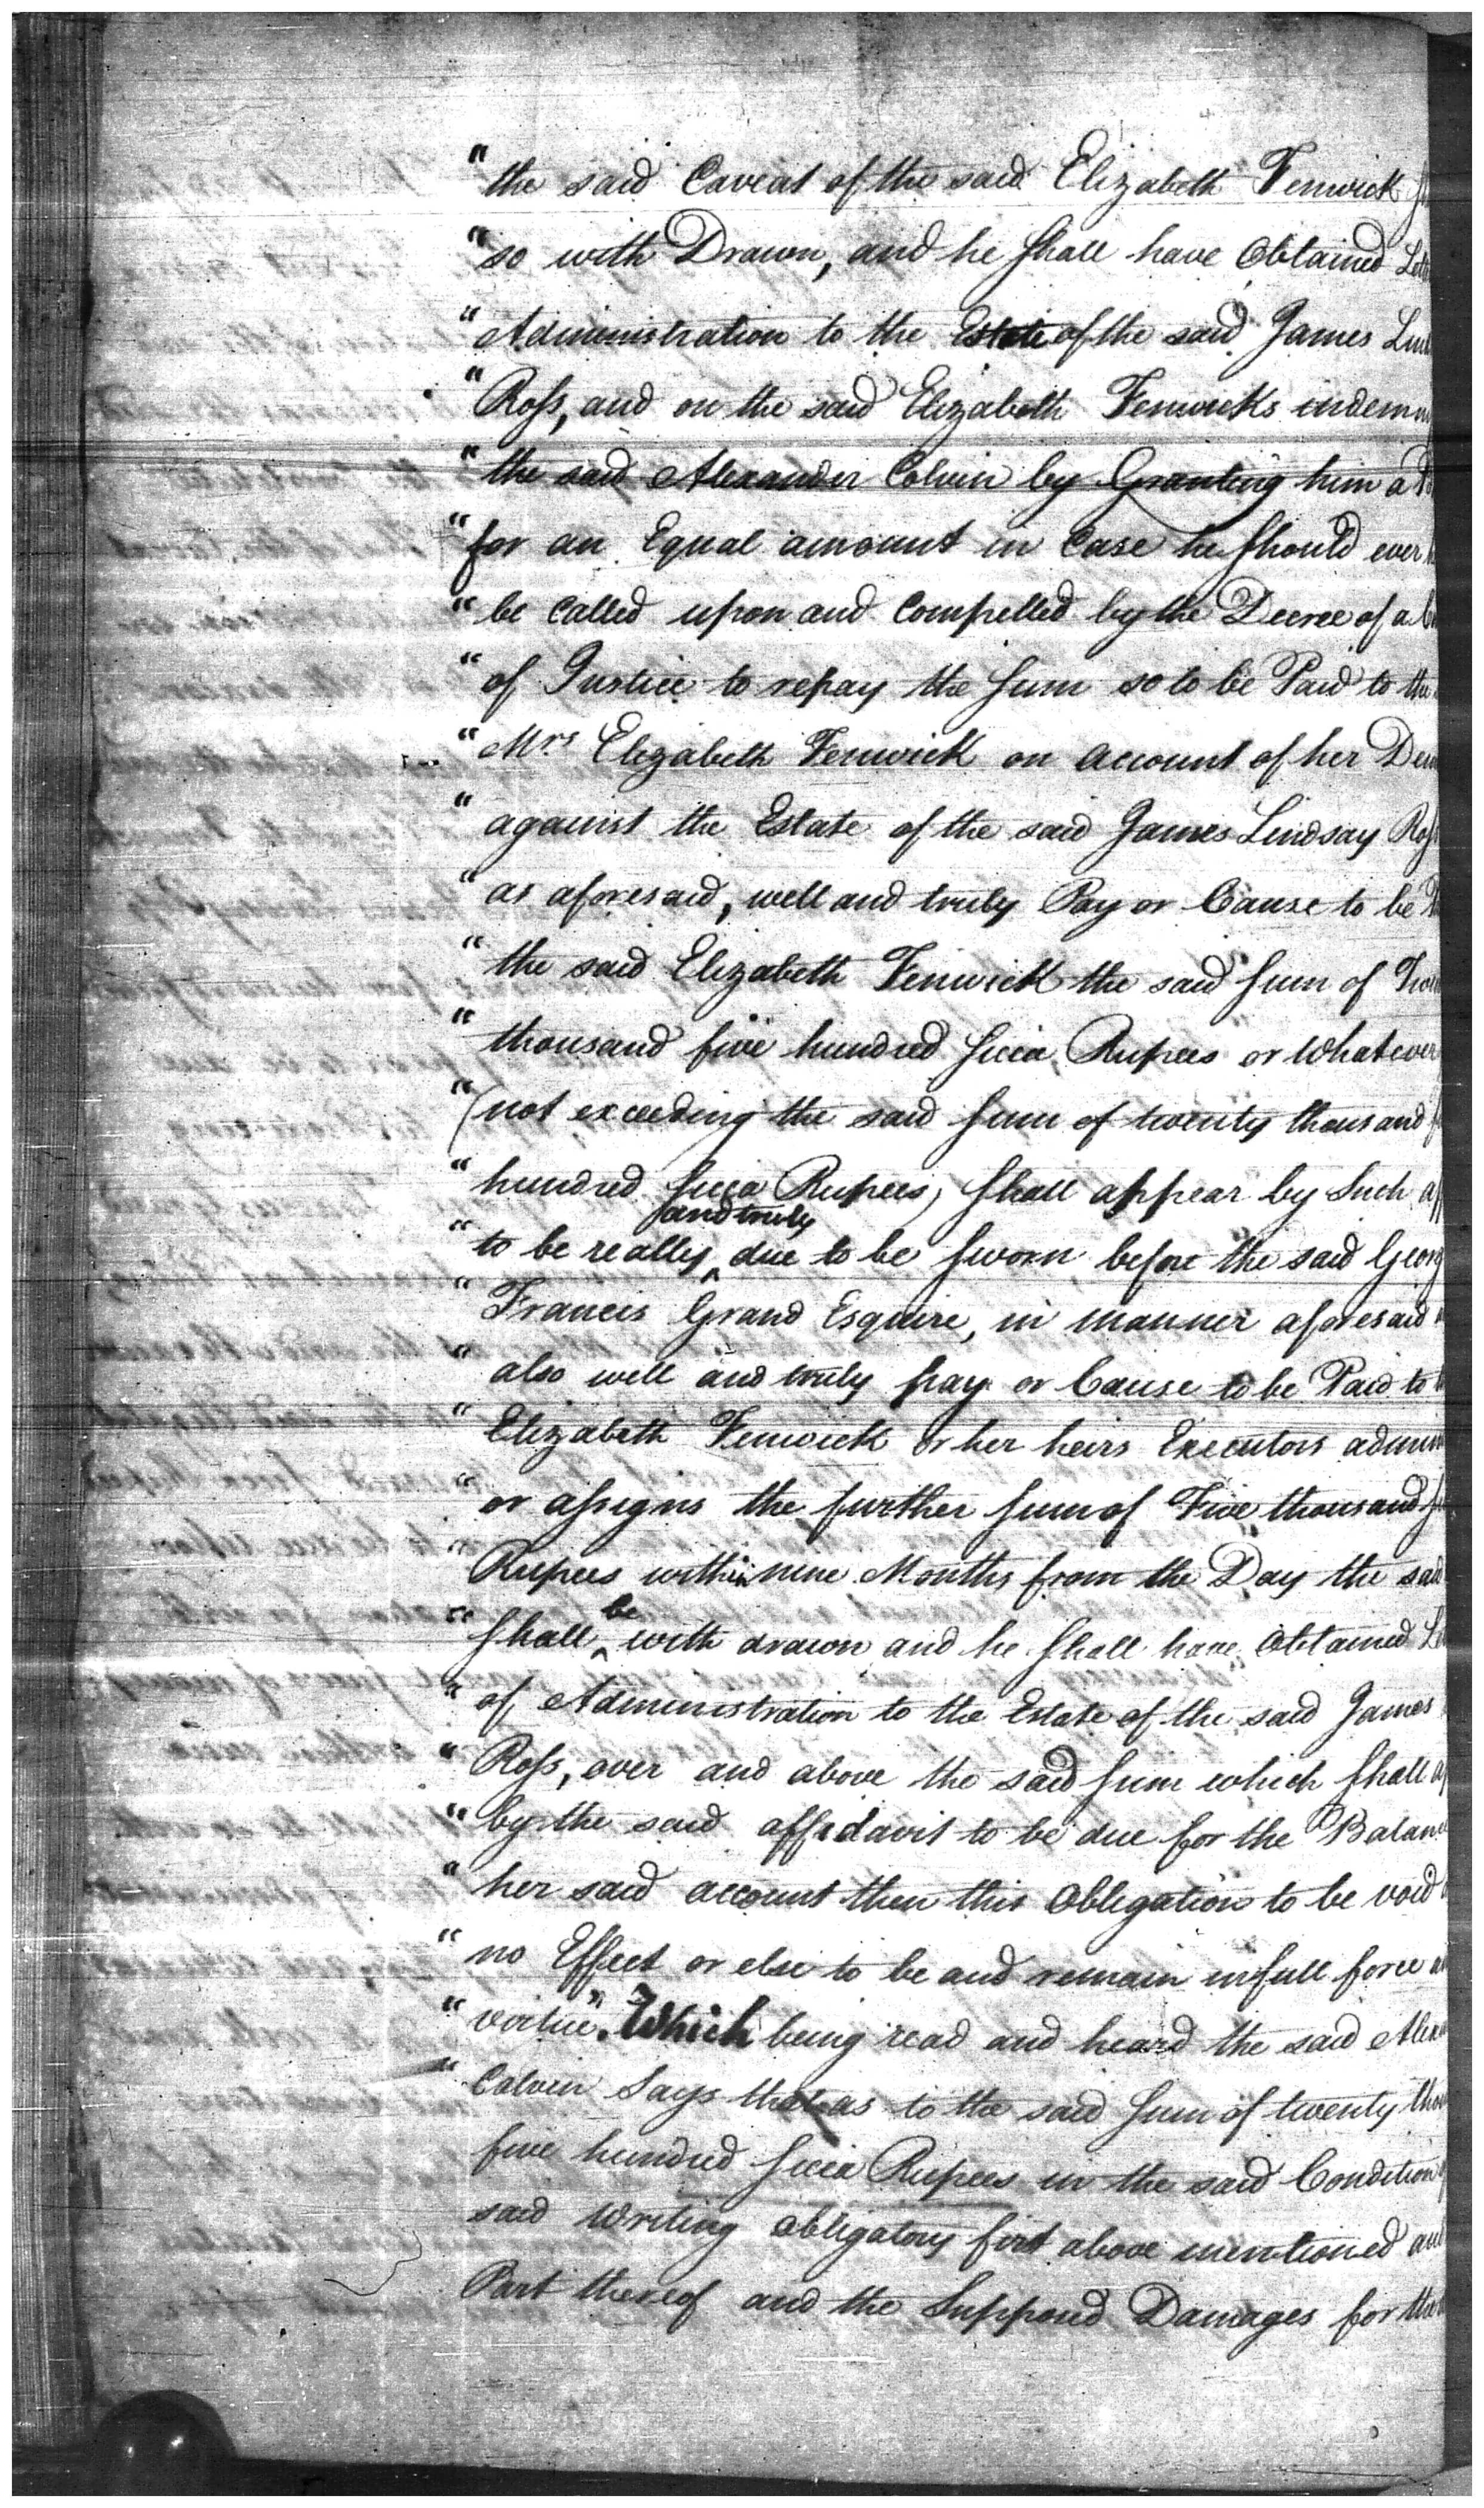 "the said Caveat of the said Elizabeth Fenwick
"so with Drawn, and he shall have Obtained
"Administration to the Estate of the said James
"Ross, and on the said Elizabeth Fenwicks
"the said Alexander Colvin by Granting him a
"for an Equal amount in Case he should ever
"be Called upon and Compelled by the Decree of a
"of Justice to repay the sum so to be Paid to the
"Mrs Elizabeth Fenwick on account of her
"against the Estate of the said James Lindsay Ross
"as aforesaid, well and truly Pay or Cause to be
"the said Elizabeth Fenwick the said sum of
"thousand five hundred Sicca Rupees or Whatever
"(not exceeding the said sum of twenty thousand
"hundred Sicca Rupees) shall appear by Such
and truly
"to be really ‸ due to be sworn before the said
"Francis Grand Esquire, in manner aforesaid
"also well and truly pay or Cause to be Paid to
"Elizabeth Fenwick or her heirs Executors
"or assigns the further sum of Five thousand
"Rupees within nine Months from the Day the
be
"shall ‸ with drawn and he shall have Obtained
"of Administration to the Estate of the said James
"Ross, over and above the said sum which shall
"by the said affidavit to be due for the
"her said account then this Obligation to be void
"no Effect or else to be and remain in full force
"virtue". Which being read and heard the said
"Colvin Says that as to the said sum of twenty
five hundred Sicca Rupees in the said Condition
said Writing obligatory first above mentioned
Part thereof and the Supposed Damages for the